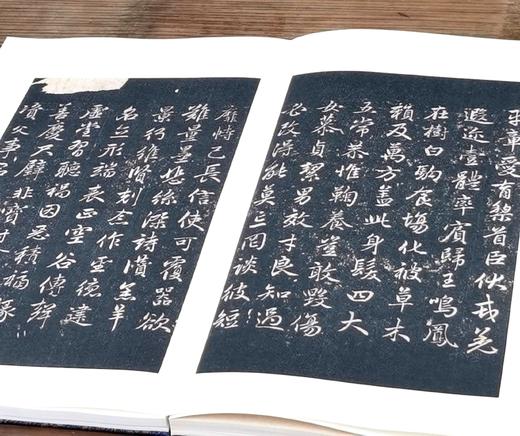 平章愛育黎首臣伏戎羌
遐邇壹體率賓歸王鳴鳳
在樹白駒食場化被草木
賴及萬方蓋此身髮四大
五常恭惟鞠養豈敢毀傷
女慕貞絜男效才良知過
必改得能莫忘罔談彼短
靡恃己長信使可覆器欲
難量墨悲絲染詩讚羔羊
景行維賢剋念作聖德建
名立形端表正空谷傳聲
虛堂習聽禍因惡積福緣
善慶尺璧非寶寸
資父事君